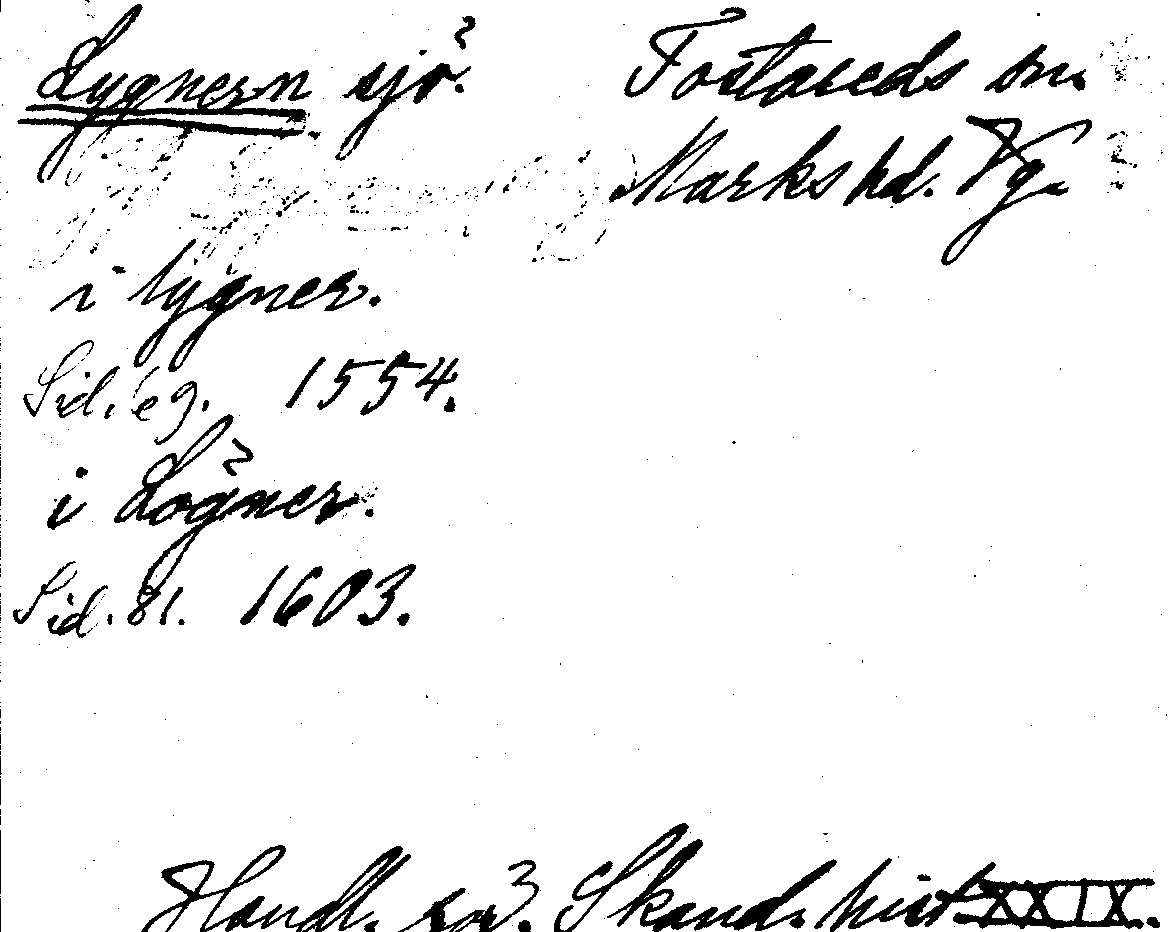 Lygnern sjö. Tostareds sn.
Marks hd. Vg.
i lygner.
Sid. 69. 1554.
i Lögner.
Sid. 81. 1603.
Handl. rör. Skand. hist. XXIX.